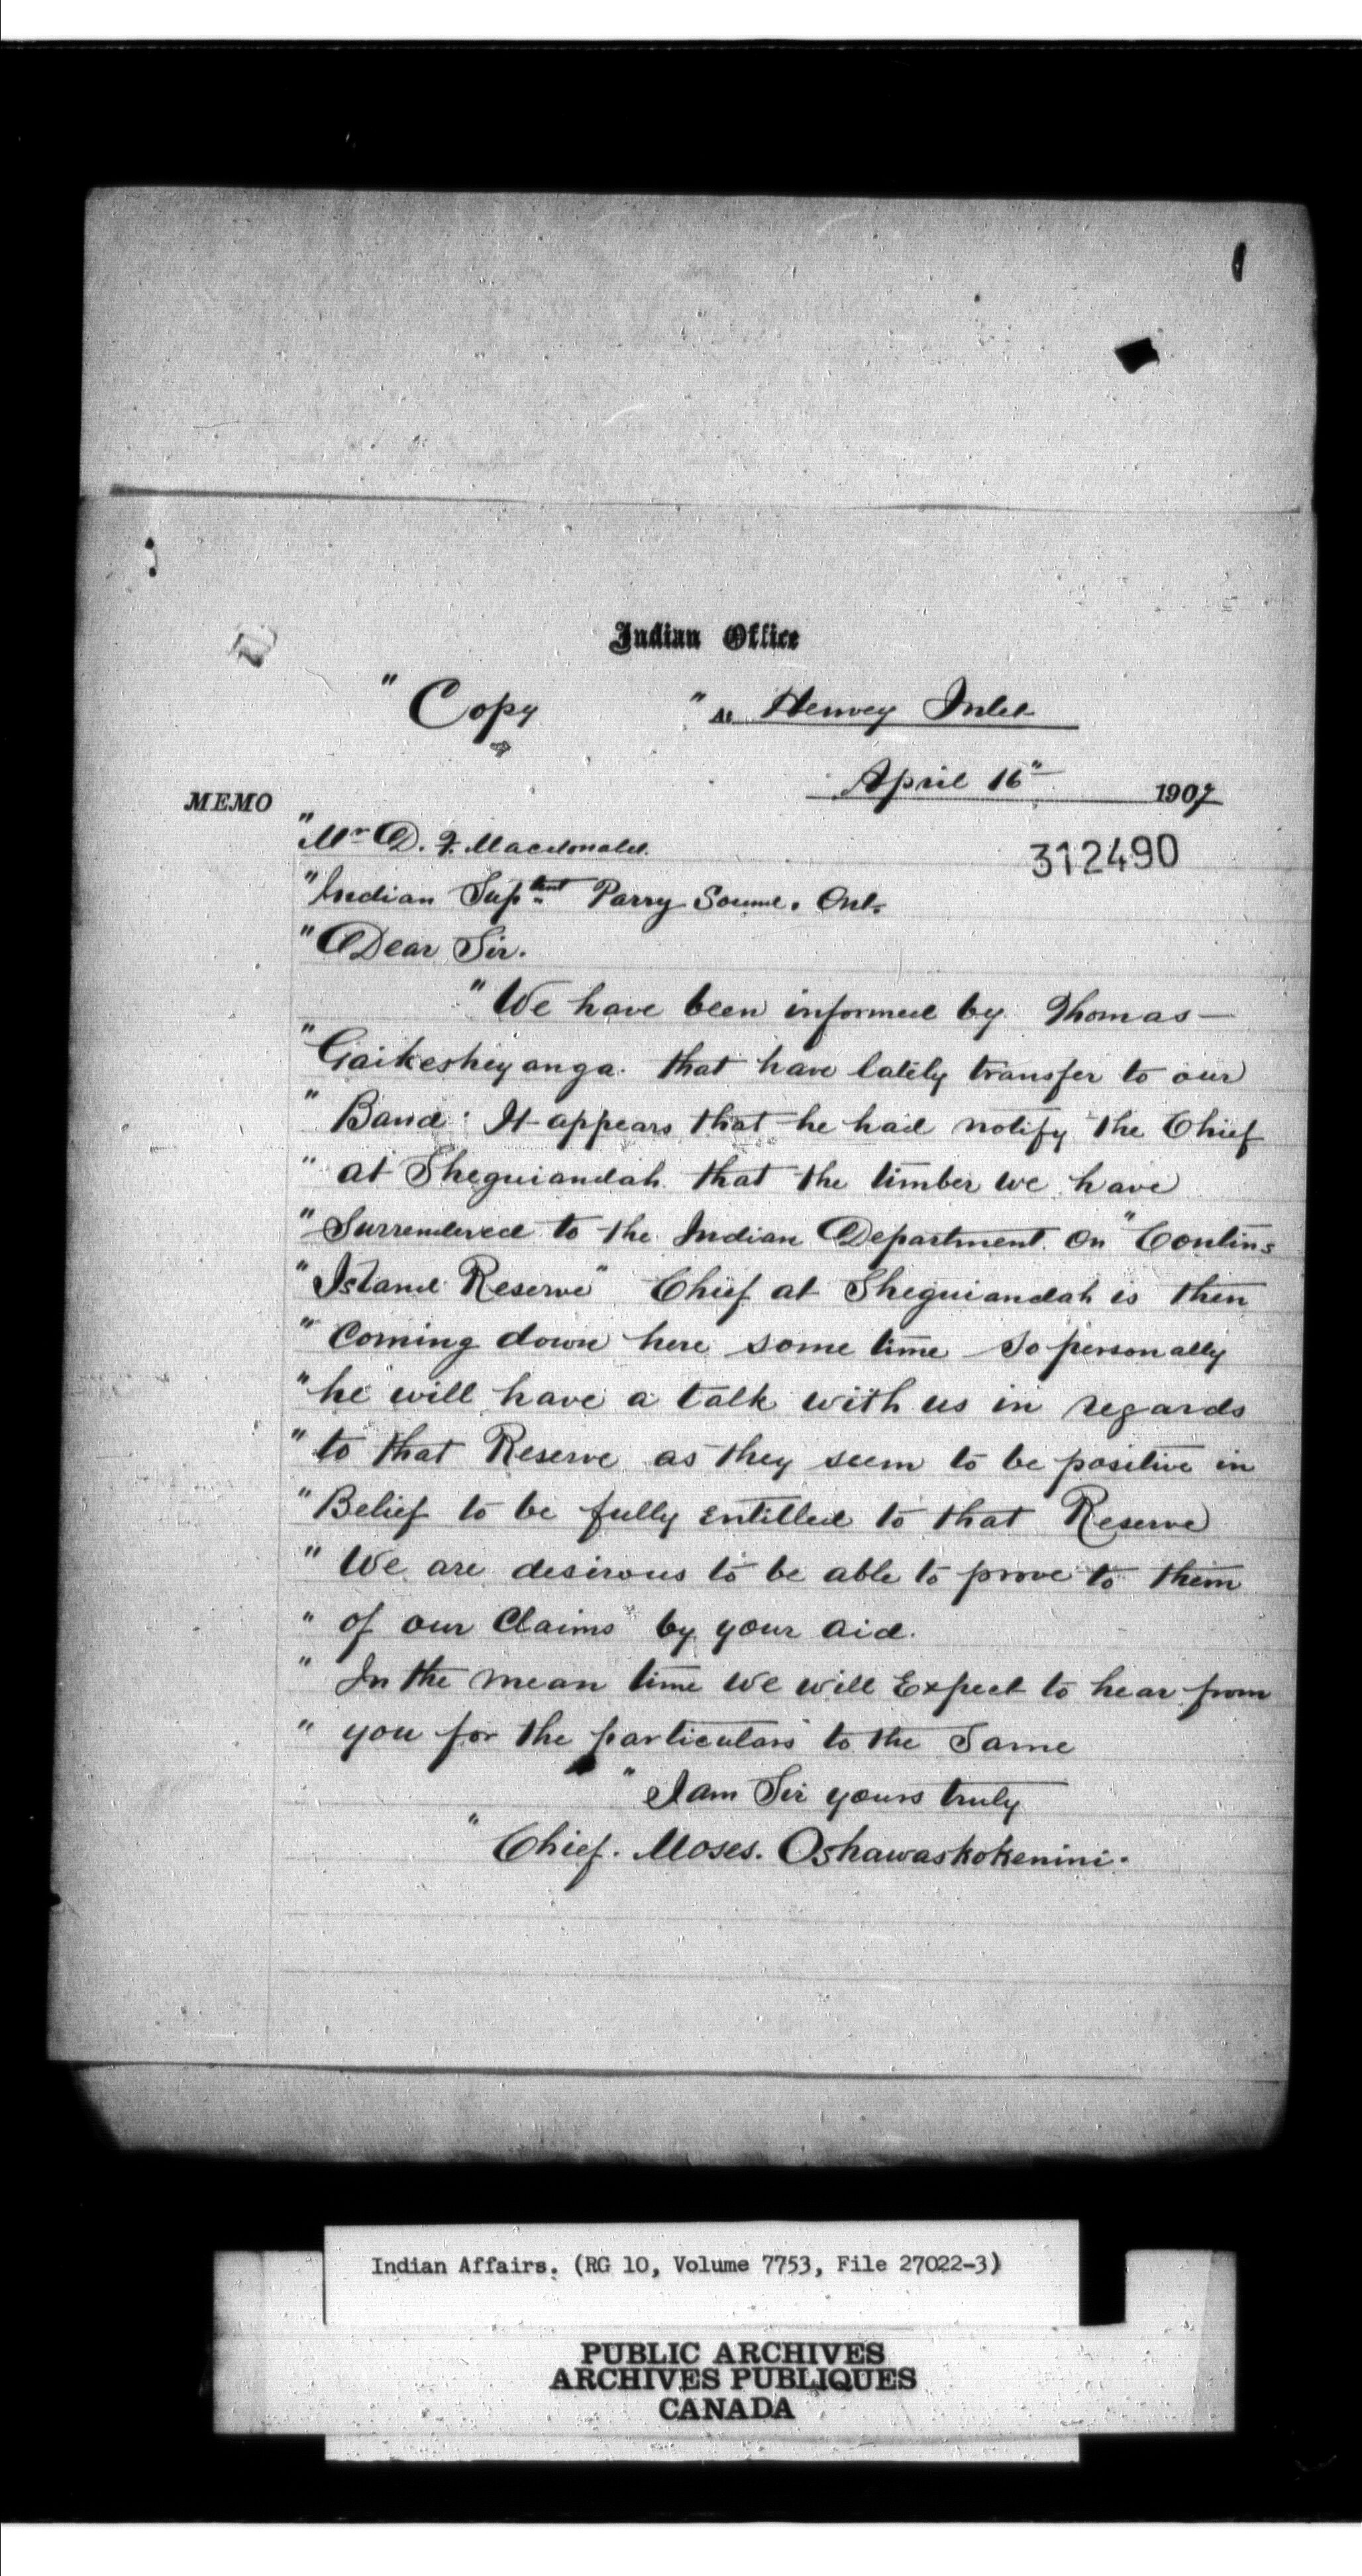 Indian Office
" Copy " At Henvey Inlet
April 16" 1907
MEMO
" Mr D. F. Macdonald.
312490
" Indian Suptent Parry Sound. Ont.
" Dear Sir.
" We have been informed by Thomas —
" Gaikesheyanga. that have lately transfer to our
" Band: It appears that he had notify the Chief
" at Sheguiandah that the timber we have
" Surrendered to the Indian Department. On "Contin-
" Island Reserve" Chief at Sheguiandah is then
" Coming down here some time So personally
" he will have a talk with us in regards
" to that Reserve as they seem to be positive in
" Belief to be fully Entitled to that Reserve
" We are desirous to be able to prove to them
" of our Claims by your aid.
" In the mean time We will Expect to hear from
" you for the particulars to the Same
" I am Sir yours truly
" Chief. Moses. Oshawaskokenini.
Indian Affairs. (RG 10, Volume 7753, File 27022-3)
PUBLIC ARCHIVES
ARCHIVES PUBLIQUES
CANADA